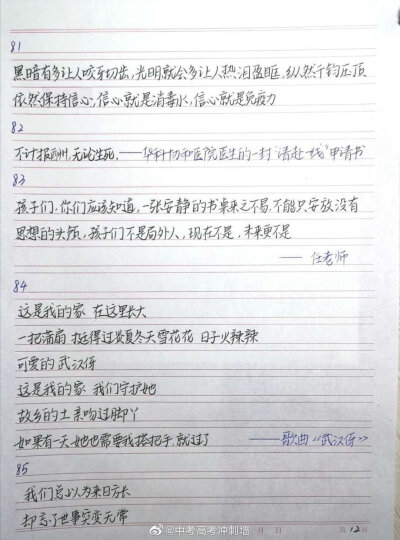 81
黑暗有多让人咬牙切齿,光明就会多让人热泪盈眶,纵然千钧压顶
依然保持信心,信心就是消毒水,信心就是免疫力
82
不计报酬,无论生死。——华科协和医院医生的一封“请赴一线”申请书
83
孩子们,你们应该知道,一张安静的书桌来之不易,不能只安放没有
思想的头颅,孩子们不是局外人,现在不是,未来更不是
——任老师
84
这是我的家 在这里长大
一把蒲扇 挺得过炎夏冬天雪花花 日子火辣辣
可爱的武汉伢
这是我的家 我们守护她
故乡的土 亲吻过脚丫
如果有一天她也需要我搭把手,就过了 ——歌曲《武汉伢》
85
我们总以为来日方长
却忘了世事突变无常
@中考高考冲刺墙
月 日 第12页